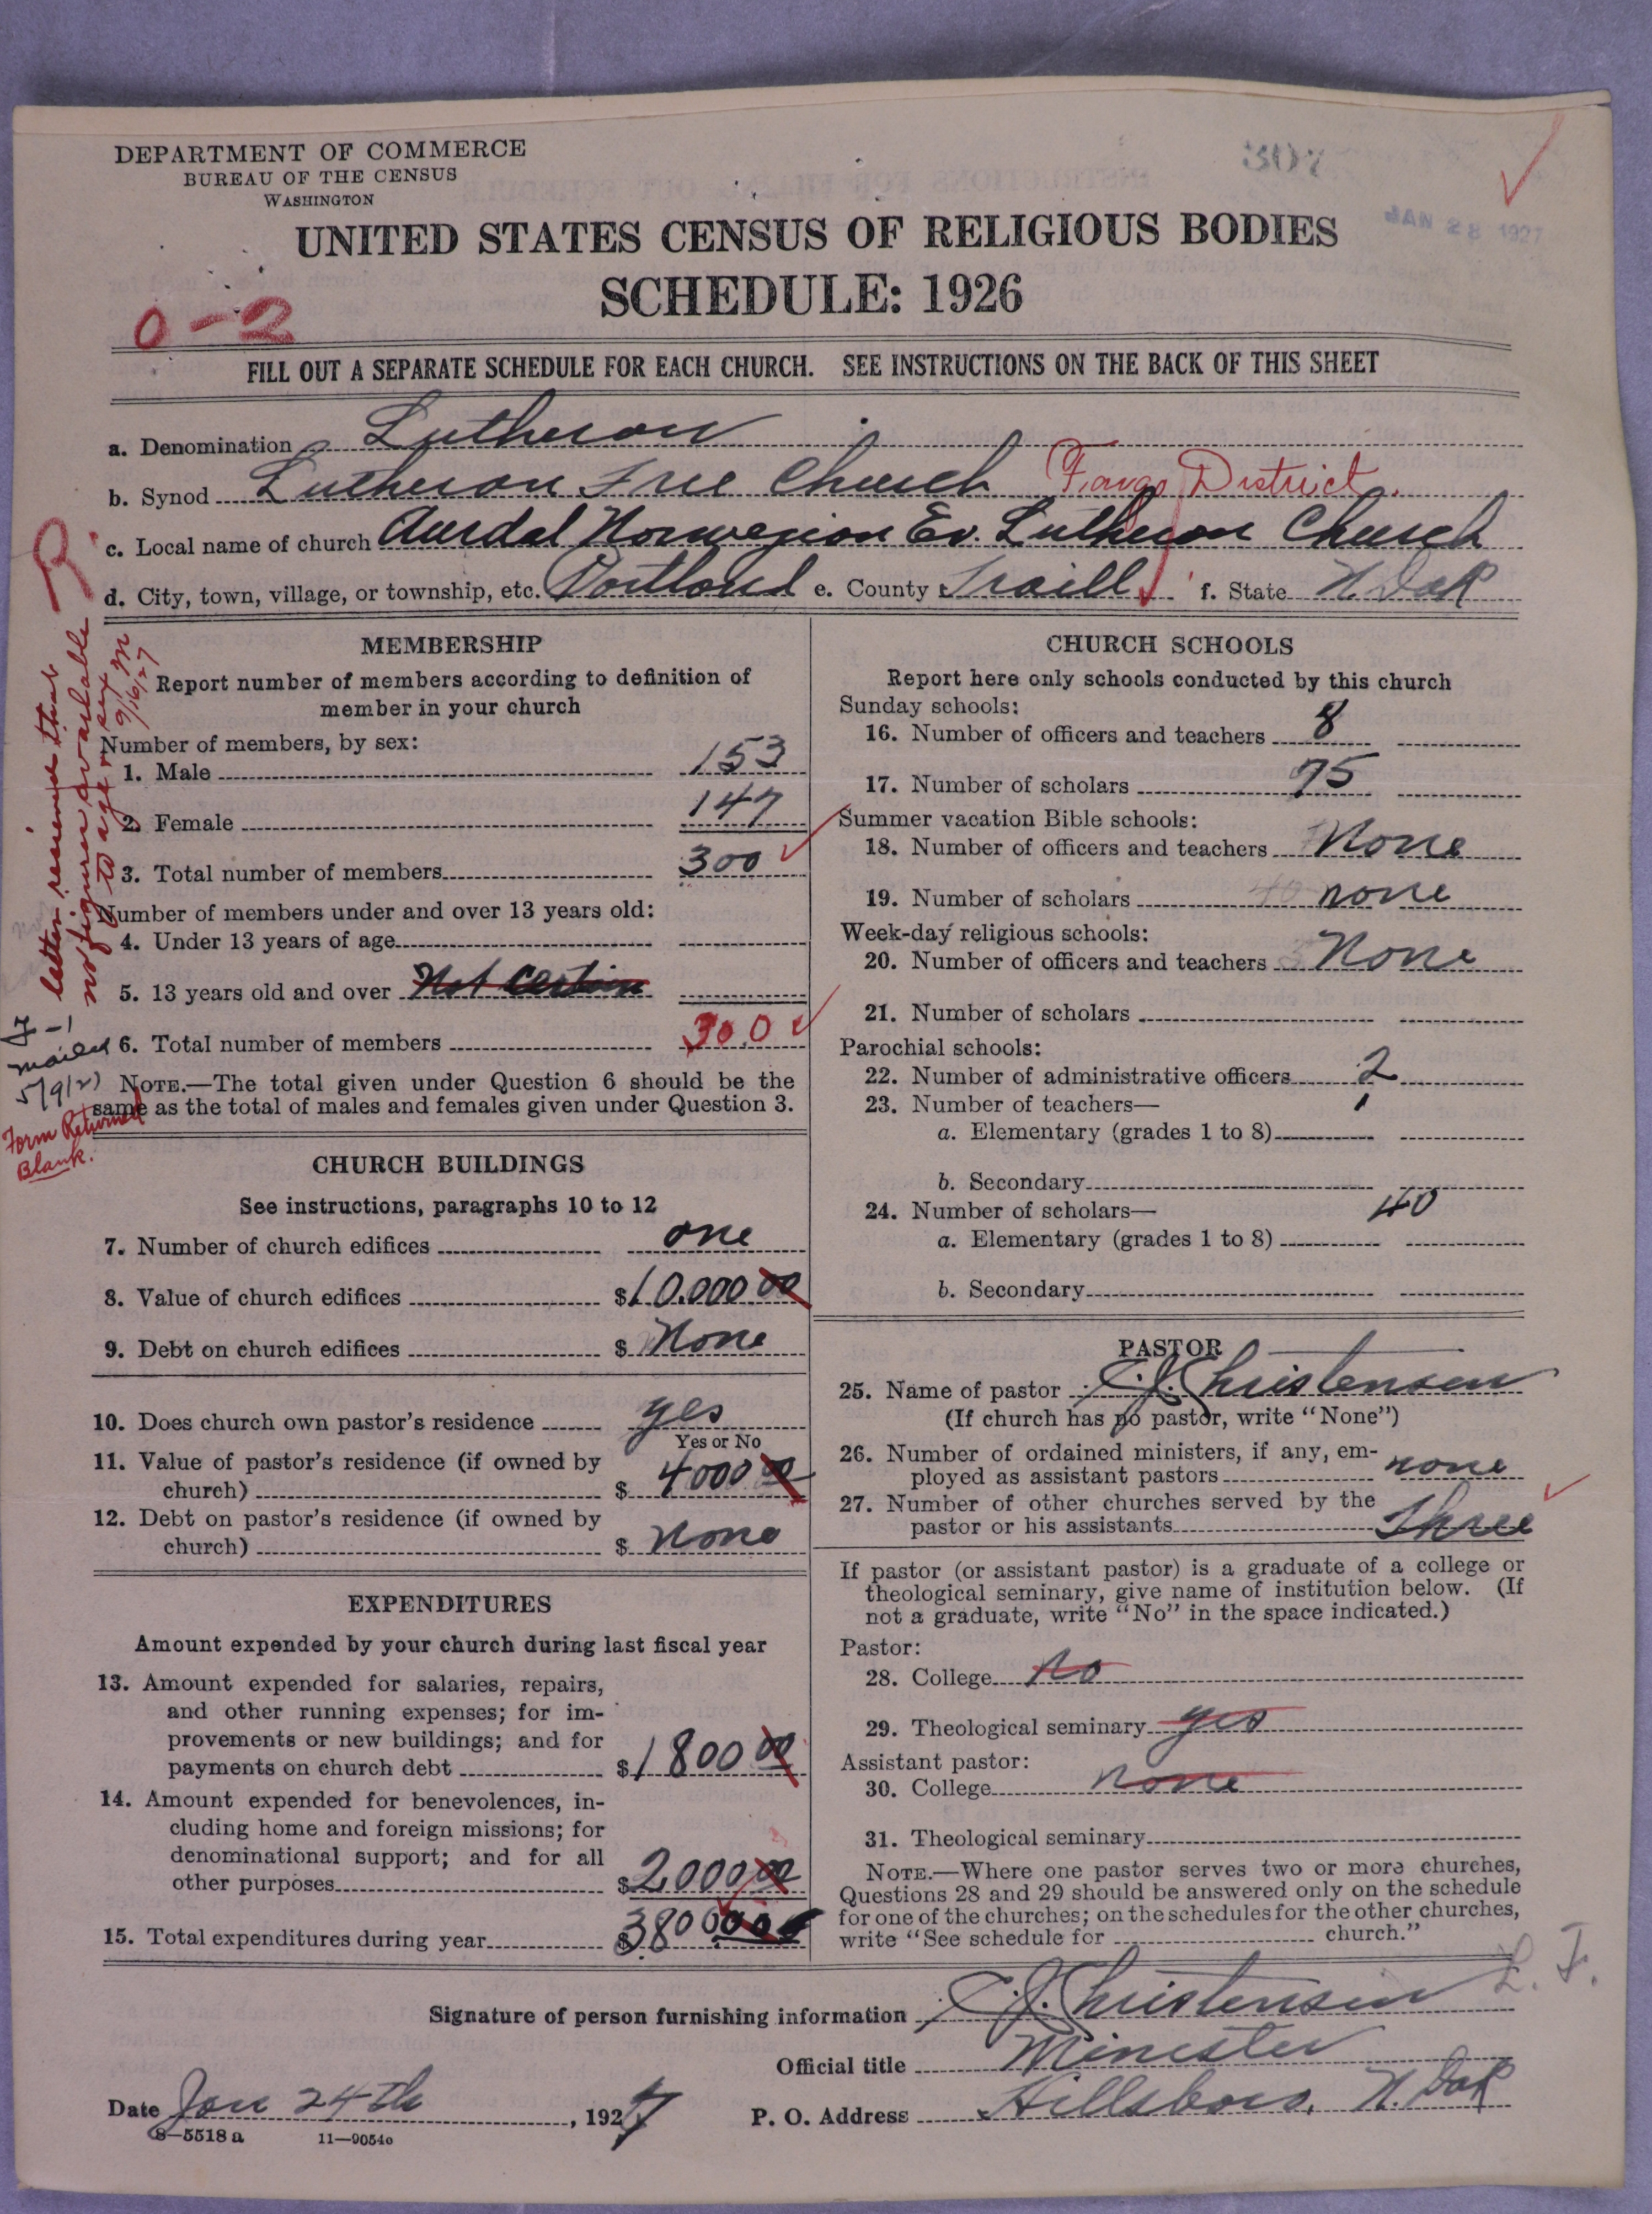 DEPARTMENT OF COMMERCE
BUREAU OF THE CENSUS
WASHINGTON
JAN 28 1927
UNITED STATES CENSUS OF RELIGIOUS BODIES
SCHEDULE: 1926
0-2
FILL OUT A SEPARATE SCHEDULE FOR EACH CHURCH. SEE INSTRUCTIONS ON THE BACK OF THIS SHEET
a. Denomination Lutheran
b. Synod Lutheran Free Church Fargo District.
c. Local name of church Aurdal Norwegian Ev. Lutheran Church
d. City, town, village, or township, etc. Portland e. County Traill f. State N. Dak
R
letter received that
no figures available
to age or sex M
9/16/27
7-1
mailed
5/9/27
Form Returned
Blank.
MEMBERSHIP
Report number of members according to definition of
member in your church
Number of members, by sex:
1. Male 153
2. Female 147
3. Total number of members 300
Number of members under and over 13 years old:
4. Under 13 years of age
5. 13 years old and over Not Certain
6. Total number of members 300
NOTE.—The total given under Question 6 should be the
same as the total of males and females given under Question 3.
CHURCH BUILDINGS
See instructions, paragraphs 10 to 12
7. Number of church edifices one
8. Value of church edifices $10.000 00
9. Debt on church edifices $ None
10. Does church own pastor's residence yes
Yes or No
11. Value of pastor's residence (if owned by
church) $ 4000 00
12. Debt on pastor's residence (if owned by
church) $ None
EXPENDITURES
Amount expended by your church during last fiscal year
13. Amount expended for salaries, repairs,
and other running expenses; for im-
provements or new buildings; and for
payments on church debt $1800 00
14. Amount expended for benevolences, in-
cluding home and foreign missions; for
denominational support; and for all
other purposes $2,000 00
15. Total expenditures during year $3800 00
CHURCH SCHOOLS
Report here only schools conducted by this church
Sunday schools:
16. Number of officers and teachers 8
17. Number of scholars 75
Summer vacation Bible schools:
18. Number of officers and teachers None
19. Number of scholars none
Week-day religious schools:
20. Number of officers and teachers None
21. Number of scholars
Parochial schools:
22. Number of administrative officers 2
23. Number of teachers—
a. Elementary (grades 1 to 8)
b. Secondary
24. Number of scholars— 40
a. Elementary (grades 1 to 8)
b. Secondary
PASTOR
25. Name of pastor C.J. Christensen
(If church has no pastor, write "None")
26. Number of ordained ministers, if any, em-
ployed as assistant pastors none
27. Number of other churches served by the
pastor or his assistants Three
If pastor (or assistant pastor) is a graduate of a college or
theological seminary, give name of institution below. (If
not a graduate, write "No" in the space indicated.)
Pastor:
28. College No
29. Theological seminary yes
Assistant pastor:
30. College none
31. Theological seminary
NOTE.—Where one pastor serves two or more churches,
Questions 28 and 29 should be answered only on the schedule
for one of the churches; on the schedules for the other churches,
write "See schedule for church."
L. F.
Signature of person furnishing information C.J. Christensen
Official title Minister
Date Jan 24th, 1927
P. O. Address Hillsboro, N. Dak
8—5518 a 11—9054o